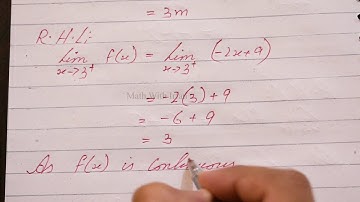 = 3m
R.H.L:
lim x→3⁺ f(x) = lim x→3⁺ (-2x+9)
= -2(3)+9
= -6+9
= 3
As f(x) is continuous